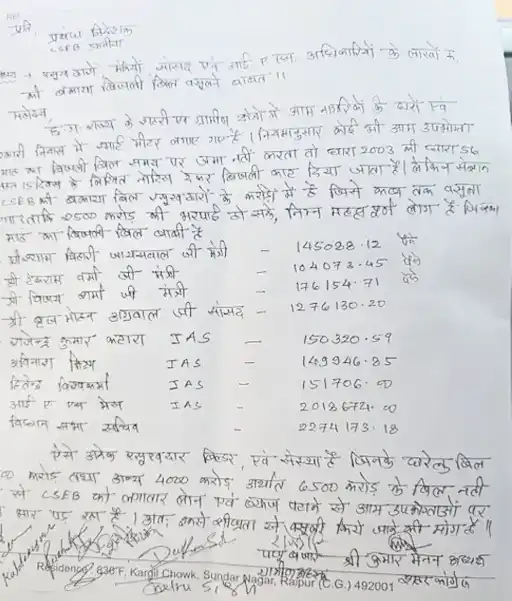 प्रति,
प्रबंध निदेशक
CSEB
रसूखदारों मंत्रियों सांसद एवं आई ए एस अधिकारियों के लाखों रु.
की बकाया बिजली बिल वसूलने बाबत ।।
महोदय,
राज्य के शहरी एवं ग्रामीण क्षेत्रों में आम नागरिकों के घरों एवं
निवास में स्मार्ट मीटर लगाए गए हैं। नियमानुसार कोई भी आम उपभोक्ता
माह का बिजली बिल समय पर जमा नहीं करता तो धारा 2003 की धारा 56
15 दिवस के लिखित नोटिस देकर बिजली काट दिया जाता है। लेकिन
CSEB की बकाया बिल रसूखदारों के करोड़ों में है जिसे कब तक वसूला
ताकि 2500 करोड़ की भरपाई हो सके, निम्न महत्वपूर्ण लोग हैं जिनका
माह का बिजली बिल बाकी है
श्री श्याम बिहारी जायसवाल जी मंत्री – 145028.12
श्री टंकराम वर्मा जी मंत्री – 104073.45
श्री विजय शर्मा जी मंत्री – 176154.71
श्री बृज मोहन अग्रवाल जी सांसद – 1276130.20
राजेन्द्र कुमार कटारा IAS – 150320.59
अविनाश मिश्रा IAS – 149946.85
हितेन्द्र विश्वकर्मा IAS – 151706.00
आई ए एस मेस IAS – 2018672.00
विधान सभा सचिव – 2274173.18
ऐसे अनेक रसूखदार एवं संस्था हैं जिनके घरेलु बिल
करोड़ तथा अन्य 4020 करोड़ अर्थात 6500 करोड़ के बिल नहीं
CSEB को लगातार लोन एवं ब्याज पटाने से आम उपभोक्ताओं पर
भार पड़ रहा है। अतः इनसे शीघ्रता से वसूली किये जाने की मांग है।।
श्री कुमार मेनन अध्यक्ष
शहर कांग्रेस
Residence: 836'F, Kargil Chowk, Sundar Nagar, Raipur (C.G.) 492001